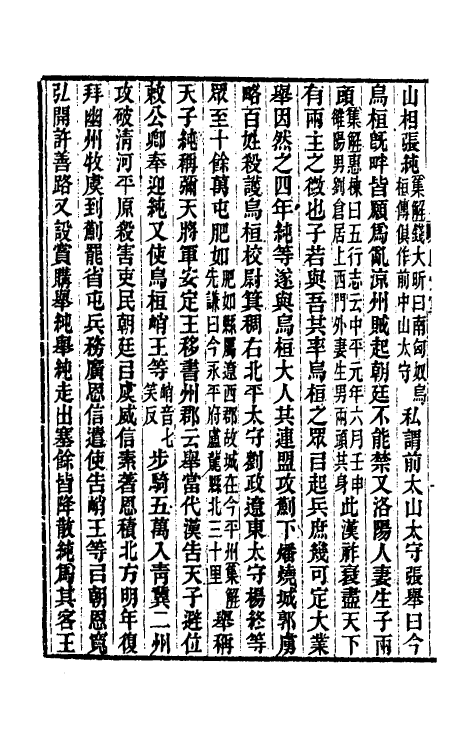 山相張純集解錢大昕曰南匈奴烏桓傳俱作前中山太守私謂前太山太守張舉曰今
烏桓旣畔皆願爲亂涼州賊起朝廷不能禁又洛陽人妻生子兩
頭集解惠棟曰五行志云中平元年六月壬申雒陽男劉倉居上西門外妻生男兩頭共身此漢祚衰盡天下
有兩主之徵也子若與吾共率烏桓之眾㠯起兵庶幾可定大業
舉因然之四年純等遂與烏桓大人共連盟攻薊下燔燒城郭虜
略百姓殺護烏桓校尉箕稠右北平太守劉政遼東太守楊終等
眾至十餘萬屯肥如肥如縣屬遼西郡故城在今平州集解先謙曰今永平府盧龍縣北三十里舉稱
天子純稱彌天將軍安定王移書州郡云舉當代漢告天子避位
敕公卿奉迎純又使烏桓峭王等峭音七笑反步騎五萬入青冀二州
攻破清河平原殺害吏民朝廷㠯虞威信素著恩積北方明年復
拜幽州牧虞到薊罷省屯兵務廣恩信遣使告峭王等㠯朝恩寬
弘開許善路又設賞購舉純舉純走出塞餘皆降散純爲其客王